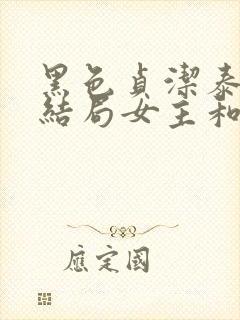 黑色貞潔泰
結局女主和
應定國